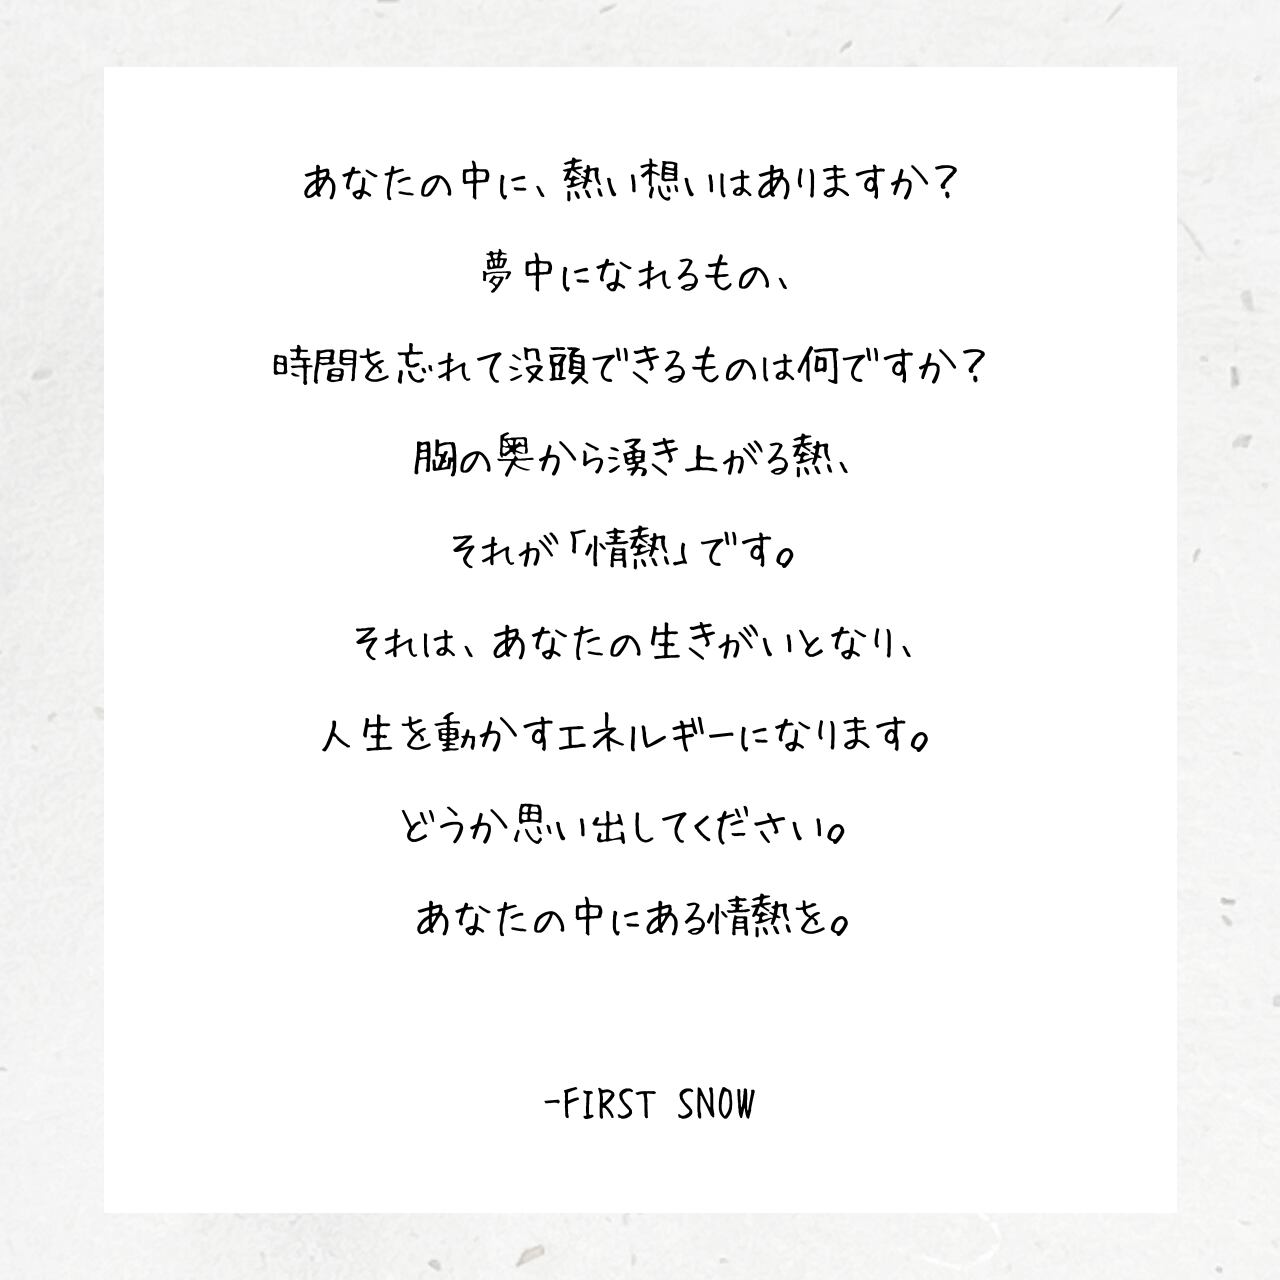 あなたの中に、熱い想いはありますか？
夢中になれるもの、
時間を忘れて没頭できるものは何ですか？
胸の奥から湧き上がる熱、
それが「情熱」です。
それは、あなたの生きがいとなり、
人生を動かすエネルギーになります。
どうか思い出してください。
あなたの中にある情熱を。
-FIRST SNOW